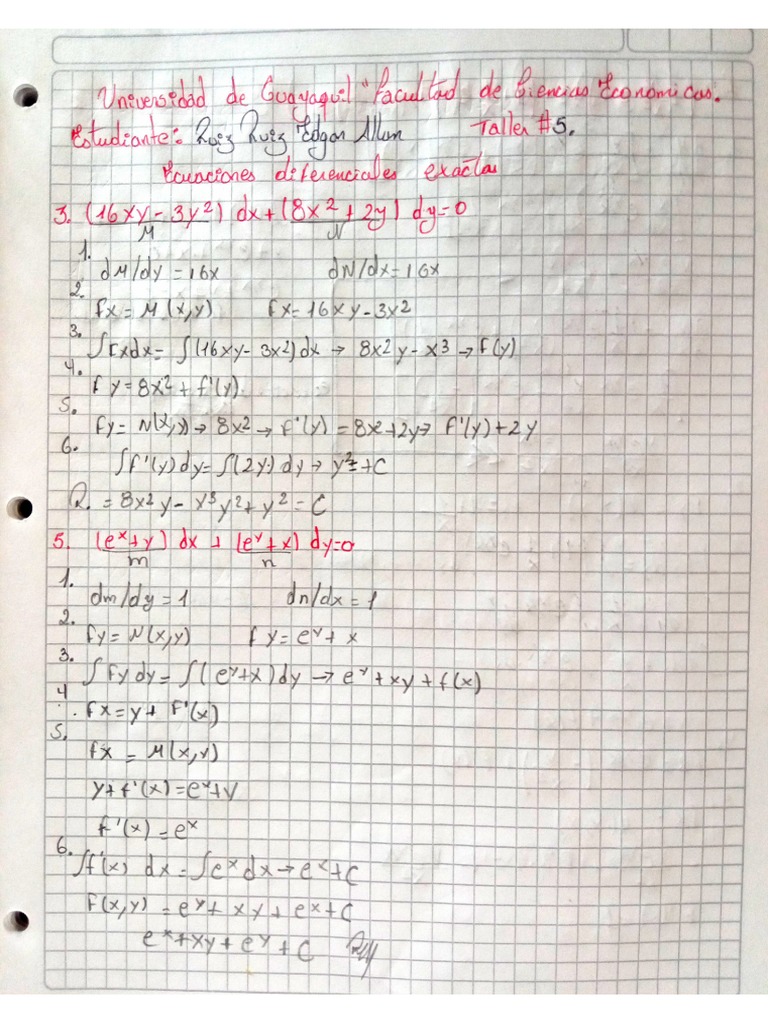 Universidad de Guayaquil "Facultad de Ciencias Economicas.
Estudiante: Ruiz Ruiz Edgar Allan Taller #5.
Ecuaciones diferenciales exactas
3. (16xy - 3y²) dx + (8x² + 2y) dy = 0
M N
1.
dM/dy = 16x dN/dx = 16x
2.
fx = M (x,y) fx = 16xy - 3x²
3.
∫fxdx = ∫(16xy - 3x²)dx → 8x²y - x³ → f(y)
4.
fy = 8x² + f'(y)
5.
fy = N(x,y) → 8x² → f'(y) = 8x + 2y → f'(y) + 2y
6.
∫f'(y) dy = ∫(2y) dy → y² + C
R. = 8x²y - x³y² + y² = C
5. (eˣ + y) dx + (eʸ + x) dy = 0
m n
1.
dm/dy = 1 dn/dx = 1
2.
fy = N(x,y) fy = eʸ + x
3.
∫fydy = ∫(eʸ + x)dy → eʸ + xy + f(x)
4
. fx = y + f'(x)
5.
fx = M(x,y)
y + f'(x) = eˣ + y
f'(x) = eˣ
6.
∫f'(x) dx = ∫eˣdx → eˣ + C
f(x,y) = eʸ + xy + eˣ + C
eˣ + xy + eʸ + C